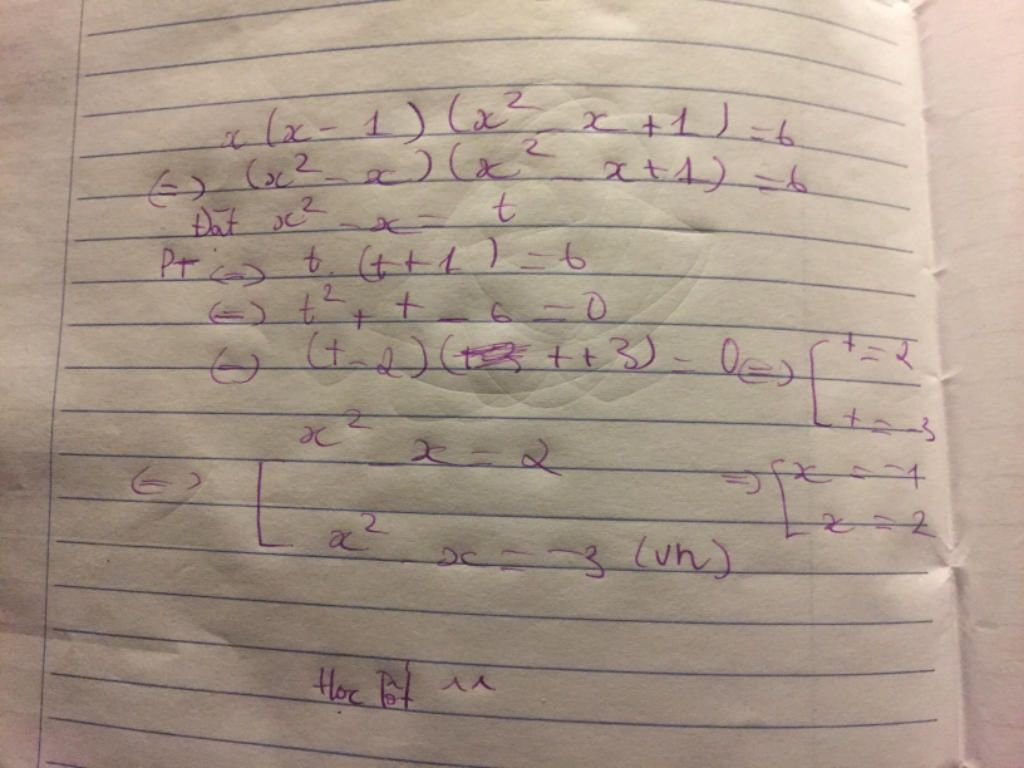 x(x-1)(x² - x+1)=6
(=) (x²-x)(x² - x+1)=6
Đặt x² - x = t
Pt (=) t.(t+1)=6
(=) t² + t - 6 = 0
(=) (t-2)(t+3) = 0 (=) [ t = 2
t = -3
(=) [ x² - x = 2 => [ x = -1
x² - x = -3 (vn) x = 2
Học tốt ^^